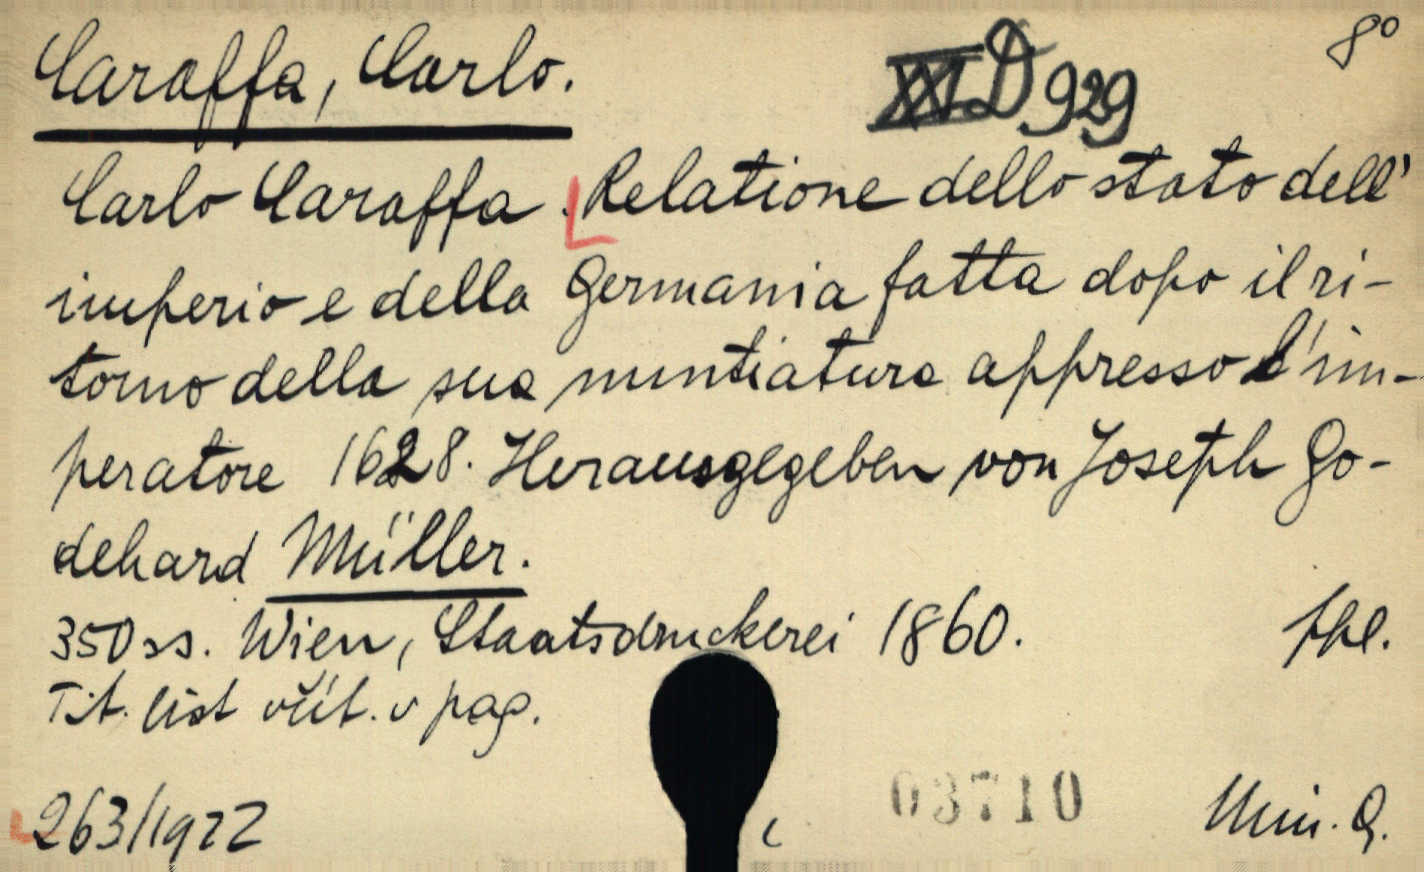 Caraffa, Carlo.
XXI.D 929
8°
Carlo Caraffa. Relatione dello stato dell'
imperio e della Germania fatta dopo il ri-
torno della sua nuntiatura appresso l'im-
peratore 1628. Herausgegeben von Joseph Go-
dehard Müller.
350 ss. Wien, Staatsdruckerei 1860. ppl.
Tit. list včít. v pag.
263/1922
03710
Q.